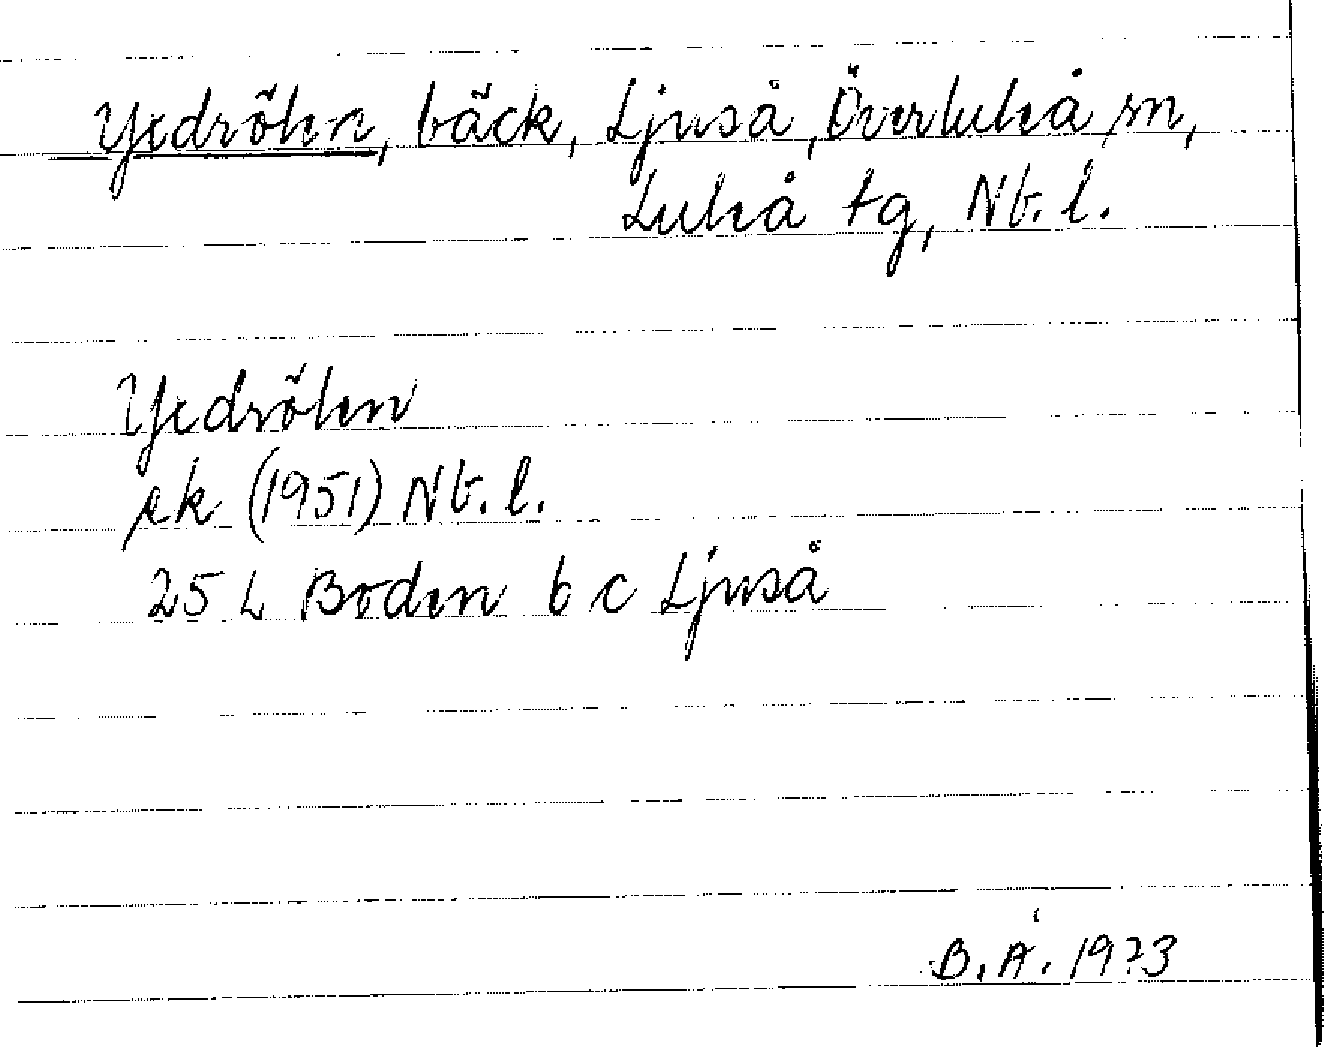 Yedrölen, bäck, Ljuså, Överluleå sn,
Luleå tg, Nb. l.
Yedrölen
ek (1951) Nb. l.
25 L Boden 6 c Ljuså
B. Å. 1973